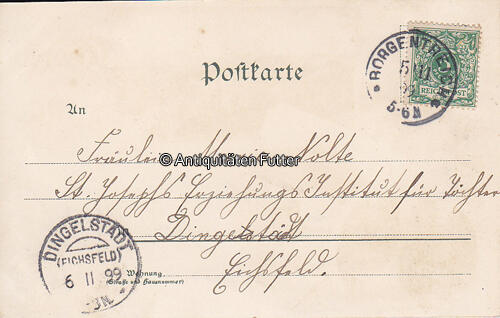 Postkarte
BORGENTREICH
5 II
99
5-6N
REICHSPOST
An
Fräulein Nolte
© Antiquitäten Futter
St. Josephs Erziehungs Institut für Töchter
Dingelstädt
Eichsfeld.
DINGELSTÄDT
(EICHSFELD)
6 II 99
Wohnung
(Straße und Hausnummer)